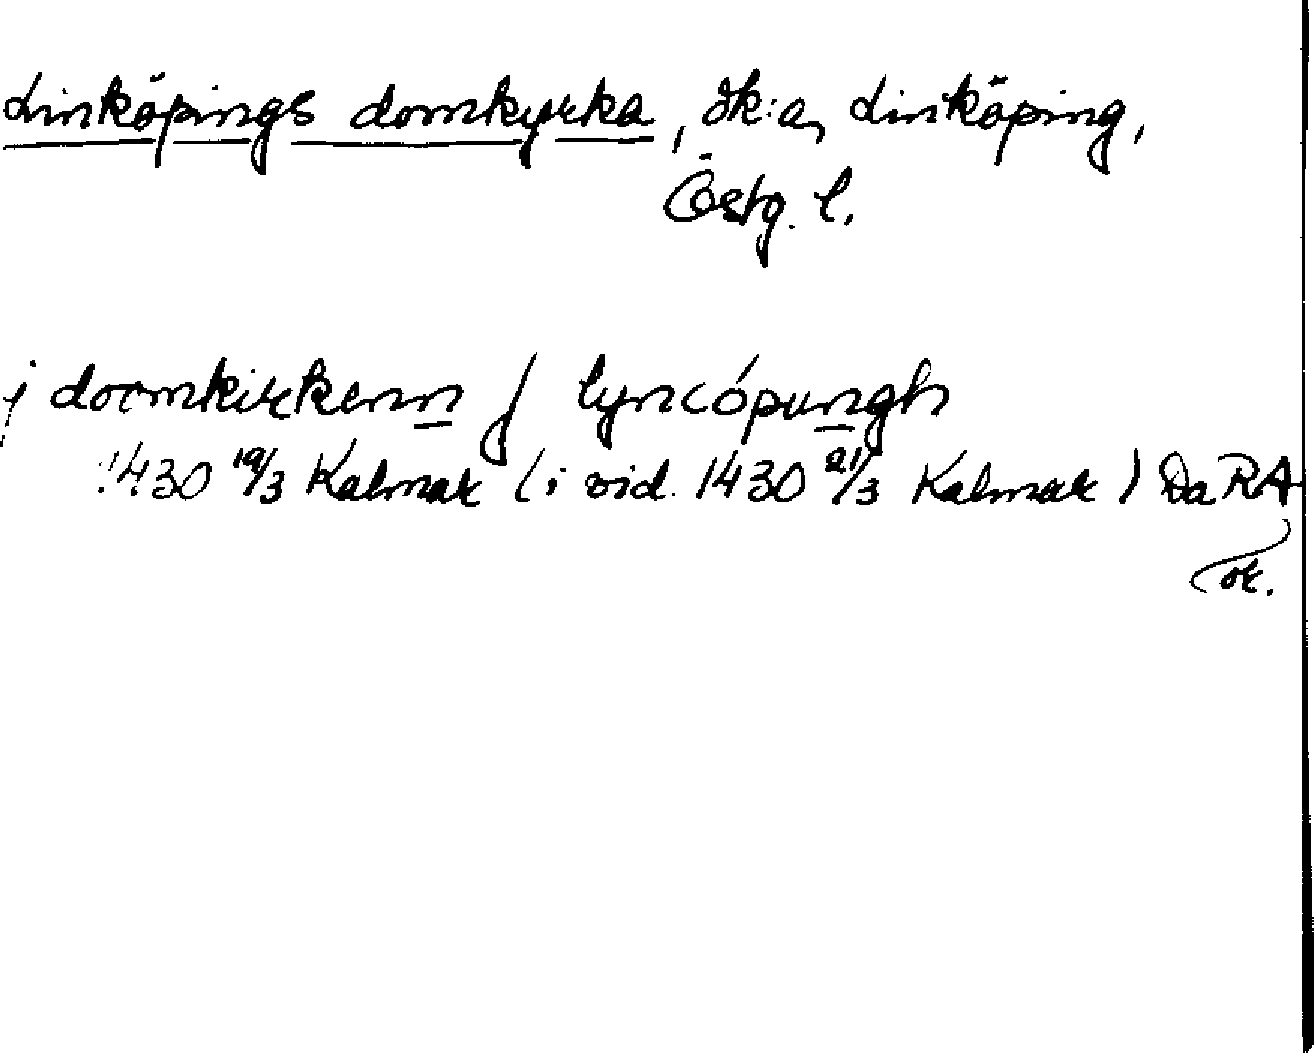 Linköpings domkyrka, dk:a, Linköping,
Östg. l.
j doomkirkenn j lyncópungh
1430 19/3 Kalmar (i vid. 1430 21/3 Kalmar) Da RA
or.